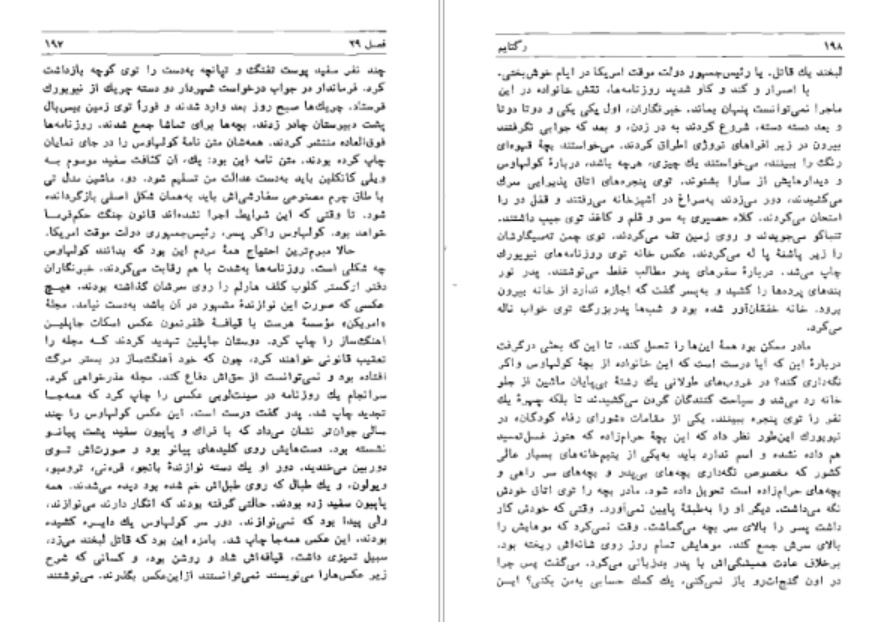 فصل ۲۹ ۱۹۷
چند نفر سفید پوست تفنگ و تپانچه به‌دست را توی کوچه بازداشت
کرد. فرماندار در جواب درخواست شهردار دو دسته چریك از نیویورك
فرستاد. چریك‌ها صبح روز بعد وارد شدند و فوراً توی زمین بیس‌بال
پشت دبیرستان چادر زدند. بچه‌ها برای تماشا جمع شدند. روزنامه‌ها
فوق‌العاده منتشر کردند. همه‌شان متن نامهٔ کولهاوس را در جای نمایان
چاپ کرده بودند. متن نامه این بود: یك، آن کثافت سفید موسوم به
ویلی کانکلین باید به‌دست عدالت من تسلیم شود. دو، ماشین مدل تی
با طاق چرم مصنوعی سفارشی‌اش باید به‌همان شکل اصلی بازگردانده
شود. تا وقتی که این شرایط اجرا نشده‌اند قانون جنگ حکم‌فرما
خواهد بود. کولهاوس واکر پسر، رئیس‌جمهوری دولت موقت امریکا.
حالا مبرم‌ترین احتیاج همهٔ مردم این بود که بدانند کولهاوس
چه شکلی است. روزنامه‌ها به‌شدت با هم رقابت می‌کردند. خبرنگاران
دفتر ارکستر کلوب کلف هارلم را روی سرشان گذاشته بودند. هیچ
عکسی که صورت این نوازندهٔ مشهور در آن باشد به‌دست نیامد. مجلهٔ
«امریکن» مؤسسهٔ هرست با قیافهٔ ظفرنمون عکس اسکات جاپلین
آهنگ‌ساز را چاپ کرد. دوستان جاپلین تهدید کردند که مجله را
تعقیب قانونی خواهند کرد، چون که خود آهنگ‌ساز در بستر مرگ
افتاده بود و نمی‌توانست از حق‌اش دفاع کند. مجله عذرخواهی کرد.
سرانجام یك روزنامه در سینت‌لویی عکسی را چاپ کرد که همه‌جا
تجدید چاپ شد. پدر گفت درست است. این عکس کولهاوس را چند
سالی جوان‌تر نشان می‌داد که با فراك و پاپیون سفید پشت پیانو
نشسته بود. دست‌هایش روی کلیدهای پیانو بود و صورت‌اش توی
دوربین می‌خندید. دور او یك دسته نوازندهٔ بانجو، قره‌نی، ترومبو،
ویولون، و یك طبال که روی طبل‌اش خم شده بود دیده می‌شدند. همه
پاپیون سفید زده بودند. حالتی گرفته بودند که انگار دارند می‌نوازند،
ولی پیدا بود که نمی‌نوازند. دور سر کولهاوس یك دایره کشیده
بودند. این عکس همه‌جا چاپ شد. بامزه این بود که قاتل لبخند می‌زد،
سبیل تمیزی داشت، قیافه‌اش شاد و روشن بود، و کسانی که شرح
زیر عکس‌ها را می‌نویسند نمی‌توانستند از این‌عکس بگذرند. می‌نوشتند
۱۹۸ رگتایم
لبخند یك قاتل. یا رئیس‌جمهور دولت موقت امریکا در ایام خوش‌بختی.
با اصرار و کند و کاو شدید روزنامه‌ها، نقش خانواده در این
ماجرا نمی‌توانست پنهان بماند. خبرنگاران، اول یکی یکی و دوتا دوتا
و بعد دسته دسته، شروع کردند به در زدن، و بعد که جوابی نگرفتند
بیرون در زیر افراهای نروژی اطراق کردند. می‌خواستند بچهٔ قهوه‌ای
رنگ را ببینند، می‌خواستند یك چیزی، هرچه باشد، دربارهٔ کولهاوس
و دیدارهایش از سارا بشنوند. توی پنجره‌های اتاق پذیرایی سرك
می‌کشیدند، دور می‌زدند به‌سراغ در آشپزخانه می‌رفتند و قفل در را
امتحان می‌کردند. کلاه حصیری به سر و قلم و کاغذ توی جیب داشتند.
تنباکو می‌جویدند و روی زمین تف می‌کردند. توی چمن ته‌سیگارشان
را زیر پاشنهٔ پا له می‌کردند. عکس خانه توی روزنامه‌های نیویورك
چاپ می‌شد. دربارهٔ سفرهای پدر مطالب غلط می‌نوشتند. پدر نور
بندهای پرده‌ها را کشید و به‌پسر گفت که اجازه ندارد از خانه بیرون
برود. خانه خفقان‌آور شده بود و شب‌ها پدربزرگ توی خواب ناله
می‌کرد.
مادر ممکن بود همهٔ این‌ها را تحمل کند، تا این که بحثی درگرفت
دربارهٔ این که آیا درست است که این خانواده از بچهٔ کولهاوس واکر
نگه‌داری کند؟ در غروب‌های طولانی یك رشتهٔ بی‌پایان ماشین از جلو
خانه رد می‌شد و سیاحت کنندگان گردن می‌کشیدند تا بلکه چهرهٔ یك
نفر را توی پنجره ببینند. یکی از مقامات «شورای رفاه کودکان» در
نیویورك این‌طور نظر داد که این بچهٔ حرام‌زاده که هنوز غسل‌تعمید
هم داده نشده و اسم ندارد باید به‌یکی از یتیم‌خانه‌های بسیار عالی
کشور که مخصوص نگه‌داری بچه‌های بی‌پدر و بچه‌های سر راهی و
بچه‌های حرام‌زاده است تحویل داده شود. مادر بچه را توی اتاق خودش
نگه می‌داشت. دیگر او را به‌طبقهٔ پایین نمی‌آورد. وقتی که خودش کار
داشت پسر را بالای سر بچه می‌گماشت. وقت نمی‌کرد که موهایش را
بالای سرش جمع کند. موهایش تمام روز روی شانه‌اش ریخته بود.
برخلاف عادت همیشگی‌اش با پدر بدزبانی می‌کرد. می‌گفت پس چرا
در اون گنج‌ات‌رو باز نمی‌کنی، یك کمك حسابی به‌من بکنی؟ ایـن